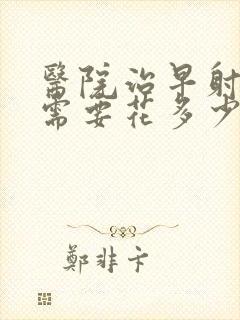 醫院治早射
需要花多少
鄭非卞